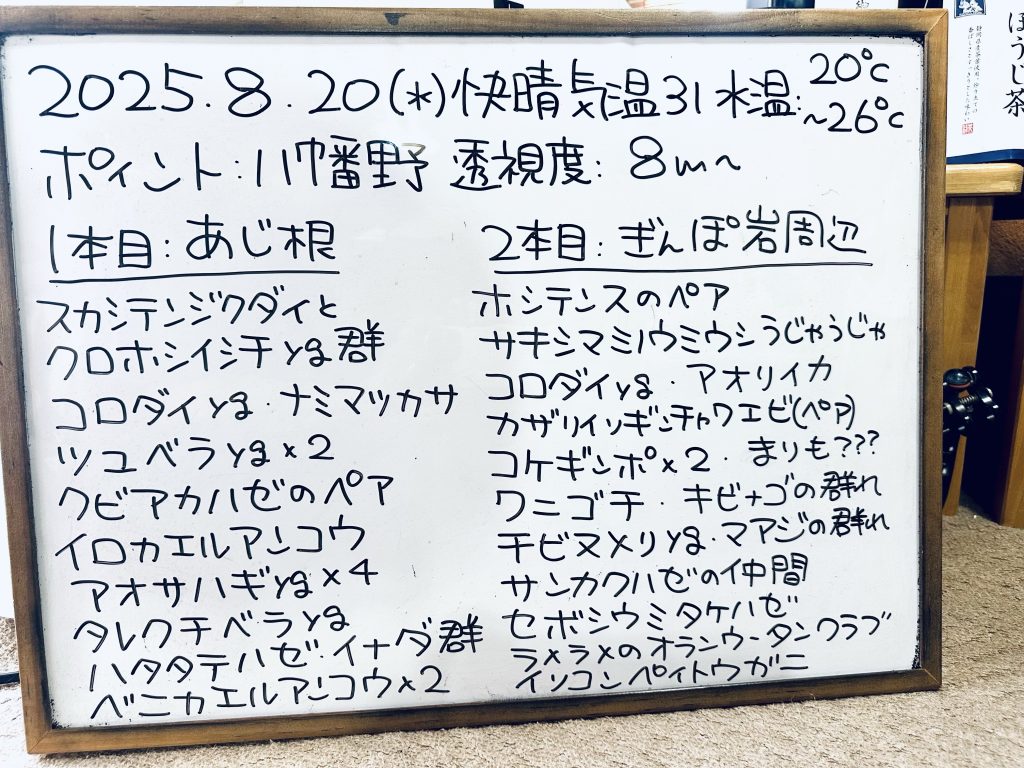 2025.8.20(水)快晴 気温31 水温:20℃~26℃
ポイント:八幡野 透視度:8m~
1本目:あじ根
スカシテンジクダイと
クロホシイシモチyg群
コロダイyg・ナミマツカサ
ツユベラyg×2
クビアカハゼのペア
イロカエルアンコウ
アオサハギyg×4
タレクチベラyg
ハタタテハゼ・イナダ群
ベニカエルアンコウ×2
2本目:ぎんぽ岩周辺
ホシテンスのペア
サキシマミノウミウシうじゃうじゃ
コロダイyg・アオリイカ
カザリイソギンチャクエビ(ペア)
コケギンポ×2・まりも???
ワニゴチ・キビナゴの群れ
チビヌメリyg・マアジの群れ
サンカクハゼの仲間
セボシウミタケハゼ
ラメラメのオランウータンクラブ
イソコンペイトウガニ
ほうじ茶